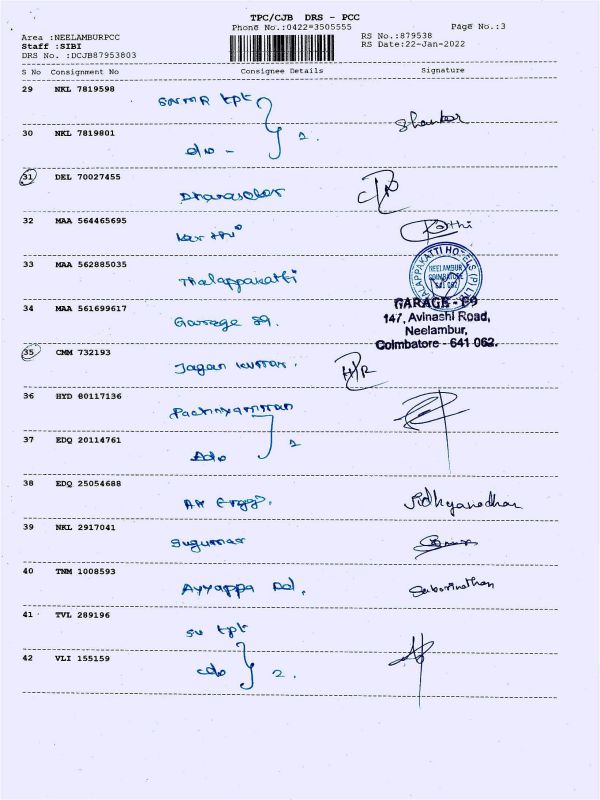 TPC/CJB DRS - PCC
Phone No.:0422-3505555 Page No.:3
Area :NEELAMBURPCC RS No.:879538
Staff :SIBI RS Date:22-Jan-2022
DRS No. :DCJB87953803
S No Consignment No Consignee Details Signature
29 NKL 7819598
tpt
Shankar
30 NKL 7819801
do - 2.
31 DEL 70027455
Dhanasekar
32 MAA 564465695
Karthi Karthi
33 MAA 562885035
Thalappakatti
THALAPPAKATTI HOTELS (P) LTD
NEELAMBUR
COIMBATORE
641 062
34 MAA 561699617
Garage 59.
GARAGE - 59
147, Avinashi Road,
Neelambur,
Coimbatore - 641 062.
35 CMM 732193
Jagan Kumar.
36 HYD 80117136
Pachiyamman
37 EDQ 20114761
do 2
38 EDQ 25054688
Engg.
39 NKL 2917041
Sugumar
40 TNM 1008593
Ayyappa Sabarinathan
41 TVL 289196
SV tpt
42 VLI 155159
do 2.